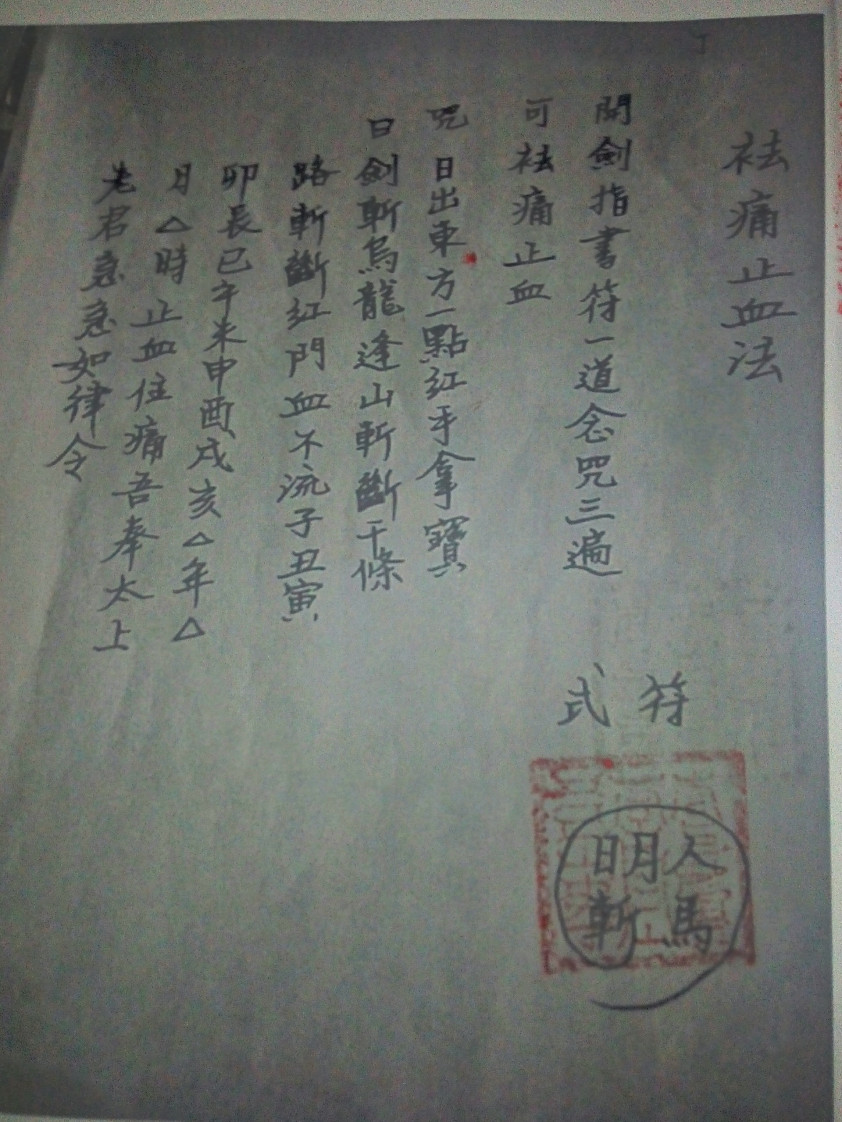 祛痛止血法
開劍指書符一道念咒三遍
可祛痛止血
咒日出東方一點紅手拿寶
曰劍斬烏龍逢山斬斷千條
路斬斷紅門血不流子丑寅
卯辰巳午未申酉戌亥△年△
月△時止血住痛吾奉太上
老君急急如律令
符
式
人馬
明
斬